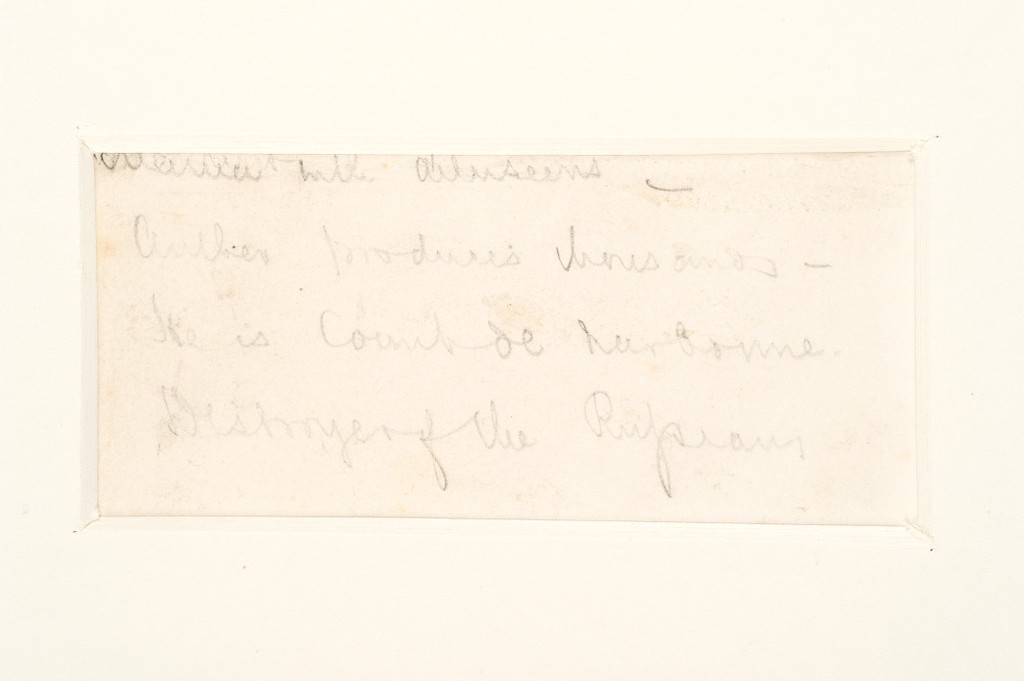 delusions —
Author produces thousands —
He is Count de Narbonne.
Destroyer of the Russians